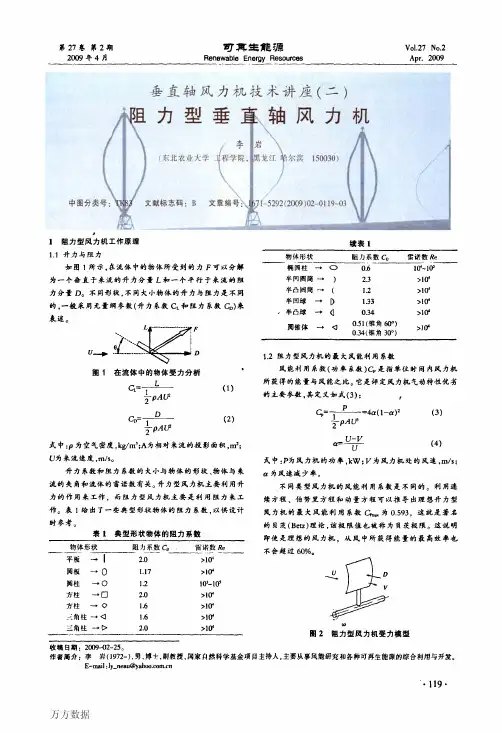 第27卷 第2期
2009年4月
可再生能源
Renewable Energy Resources
Vol.27 No.2
Apr. 2009
垂直轴风力机技术讲座(二)
阻力型垂直轴风力机
李 岩
(东北农业大学 工程学院, 黑龙江 哈尔滨 150030)
中图分类号: TK83 文献标志码: B 文章编号: 1671-5292(2009)02-0119-03
1 阻力型风力机工作原理
1.1 升力与阻力
如图1所示,在流体中的物体所受到的力F可以分解
为一个垂直于来流的升力分量L和一个平行于来流的阻
力分量D。不同形状,不同大小物体的升力与阻力是不同
的,一般采用无量纲参数(升力系数CL和阻力系数CD)来
表述。
L F
θ
U D
图1 在流体中的物体受力分析
CL=L/(1/2 ρAU²) (1)
CD=D/(1/2 ρAU²) (2)
式中:ρ为空气密度,kg/m³;A为相对来流的投影面积,m²;
U为来流速度,m/s。
升力系数和阻力系数的大小与物体的形状、物体与来
流的夹角和流体的雷诺数有关。升力型风力机主要利用升
力的作用来工作,而阻力型风力机主要是利用阻力来工
作。表1给出了一些典型形状物体的阻力系数,以供设计
时参考。
表1 典型形状物体的阻力系数
物体形状 阻力系数CD 雷诺数Re
平板 → 2.0 >10⁴
圆板 → 1.17 >10⁴
圆柱 → 1.2 10³~10⁵
方柱 → 2.0 >10⁴
方柱 → 1.6 >10⁴
三角柱 → 1.6 >10⁴
三角柱 → 2.0 >10⁴
续表1
物体形状 阻力系数CD 雷诺数Re
椭圆柱 → 0.6 10³~10⁵
半凹圆筒 → 2.3 >10⁴
半凸圆筒 → 1.2 >10⁴
半凹球 → 1.33 >10⁴
半凸球 → 0.34 >10⁴
圆锥体 → 0.51(锥角60°) >10⁴
0.34(锥角30°)
1.2 阻力型风力机的最大风能利用系数
风能利用系数(功率系数)CP是指单位时间内风力机
所获得的能量与风能之比。它是评定风力机气动特性优劣
的主要参数,其定义如式(3):
CP=P/(1/2 ρAU³)=4α(1-α)² (3)
α=(U-V)/U (4)
式中:P为风力机的功率,kW;V为风力机处的风速,m/s;
α为风速减少率。
不同类型风力机的风能利用系数是不同的。利用连
续方程、伯努里方程和动量方程可以推导出理想升力型
风力机的最大风能利用系数CPmax为0.593,这就是著名
的贝茨(Betz)理论,该极限值也被称为贝茨极限。这说明
即使是理想的风力机,从风中所获得能量的最高效率也
不会超过60%。
U D
V
ω
图2 阻力型风力机受力模型
收稿日期: 2009-02-25。
作者简介: 李 岩(1972-),男,博士,副教授,国家自然科学基金项目主持人,主要从事风能研究和各种可再生能源的综合利用与开发。
E-mail:ly_neau@yahoo.com.cn
·119·
万方数据